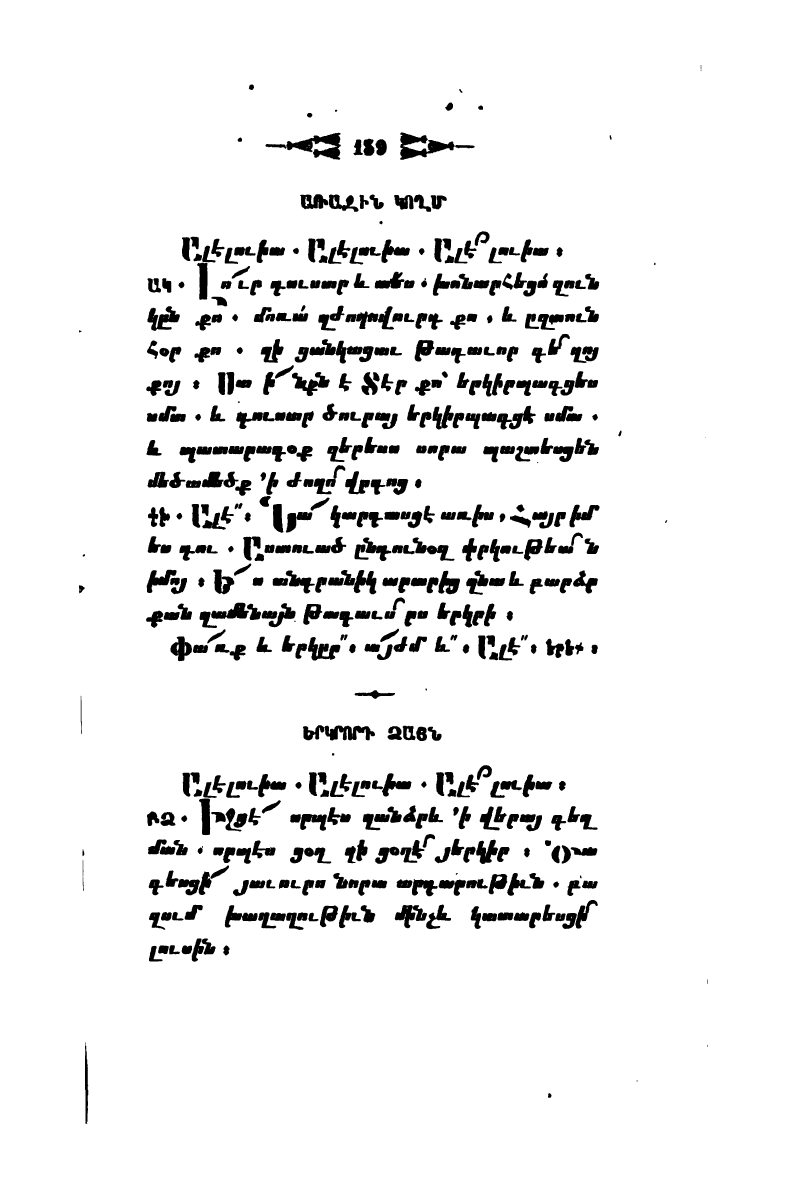 159
ԱՌԱՋԻՆ ԿՈՂՄ
Ալէլուիա ․ Ալէլուիա ․ Ալէ՟լուիա ։
ԱԿ ․ Լո՜ւր դուստր և տես ․ խոնարհեցո՛ զուն
կըն քո ․ մոռա՛ զժողովուրդ քո , և ըզտուն
հօր քո ․ զի ցանկացաւ Թագաւոր գե՟ղոյ
քոյ ։ Զատ ի՜նքն է Տէր քո՝ երկիրպագցես
նմա ․ և դուստր Ծուրայ երկիրպագցէ նմա ․
և պատարագօք զերեսս նորա պաշտեսցեն
մեծամեծք ՚ի ժողո՟վրդոց ։
ՎԻ ․ Ալէ՞ ։ Նա՜ կարդասցէ առիս , Հայր իմ
ես դու ․ Աստուած ընդունօղ փրկութեա՟ն
իմոյ ։ Ե՜ս անդրանիկ արարից զնա և բարձր
քան զամենայն Թագաւո՟րս երկրի ։
Փա՜ռք և երկրը՞ ։ ա՜յժմ և՞ ։ Ալէ՞ ։
ԵՐԿՐՈՐԴ ՁԱՅՆ
Ալէլուիա ․ Ալէլուիա ․ Ալէ՟լուիա ։
ԲՁ ․ Իջցէ՜ որպէս զանձրև ՚ի վերայ գեղ
ման ․ որպէս ցօղ զի ցօղէ՟ յերկիր ։ Ծա
գեսցի՜ յաւուրս նորա արդարութիւն ․ բա
զում խաղաղութիւն մինչև կատարեսցի՟
լուսին ։